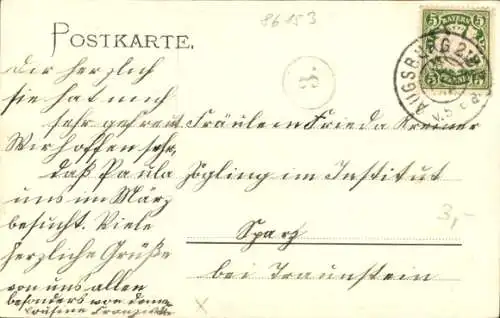 86153
POSTKARTE.
5 BAYERN 5
AUGSBURG 2
V.
Der herzlich
sie hat mich
sehr gefreut
Wir hoffen sehr,
daß Paula
uns im März
besucht. Viele
herzliche Grüße
von uns allen
besonders von
Cousine
Fräulein Frieda
Zögling im Institut
Sparz
bei Traunstein
3,-
X